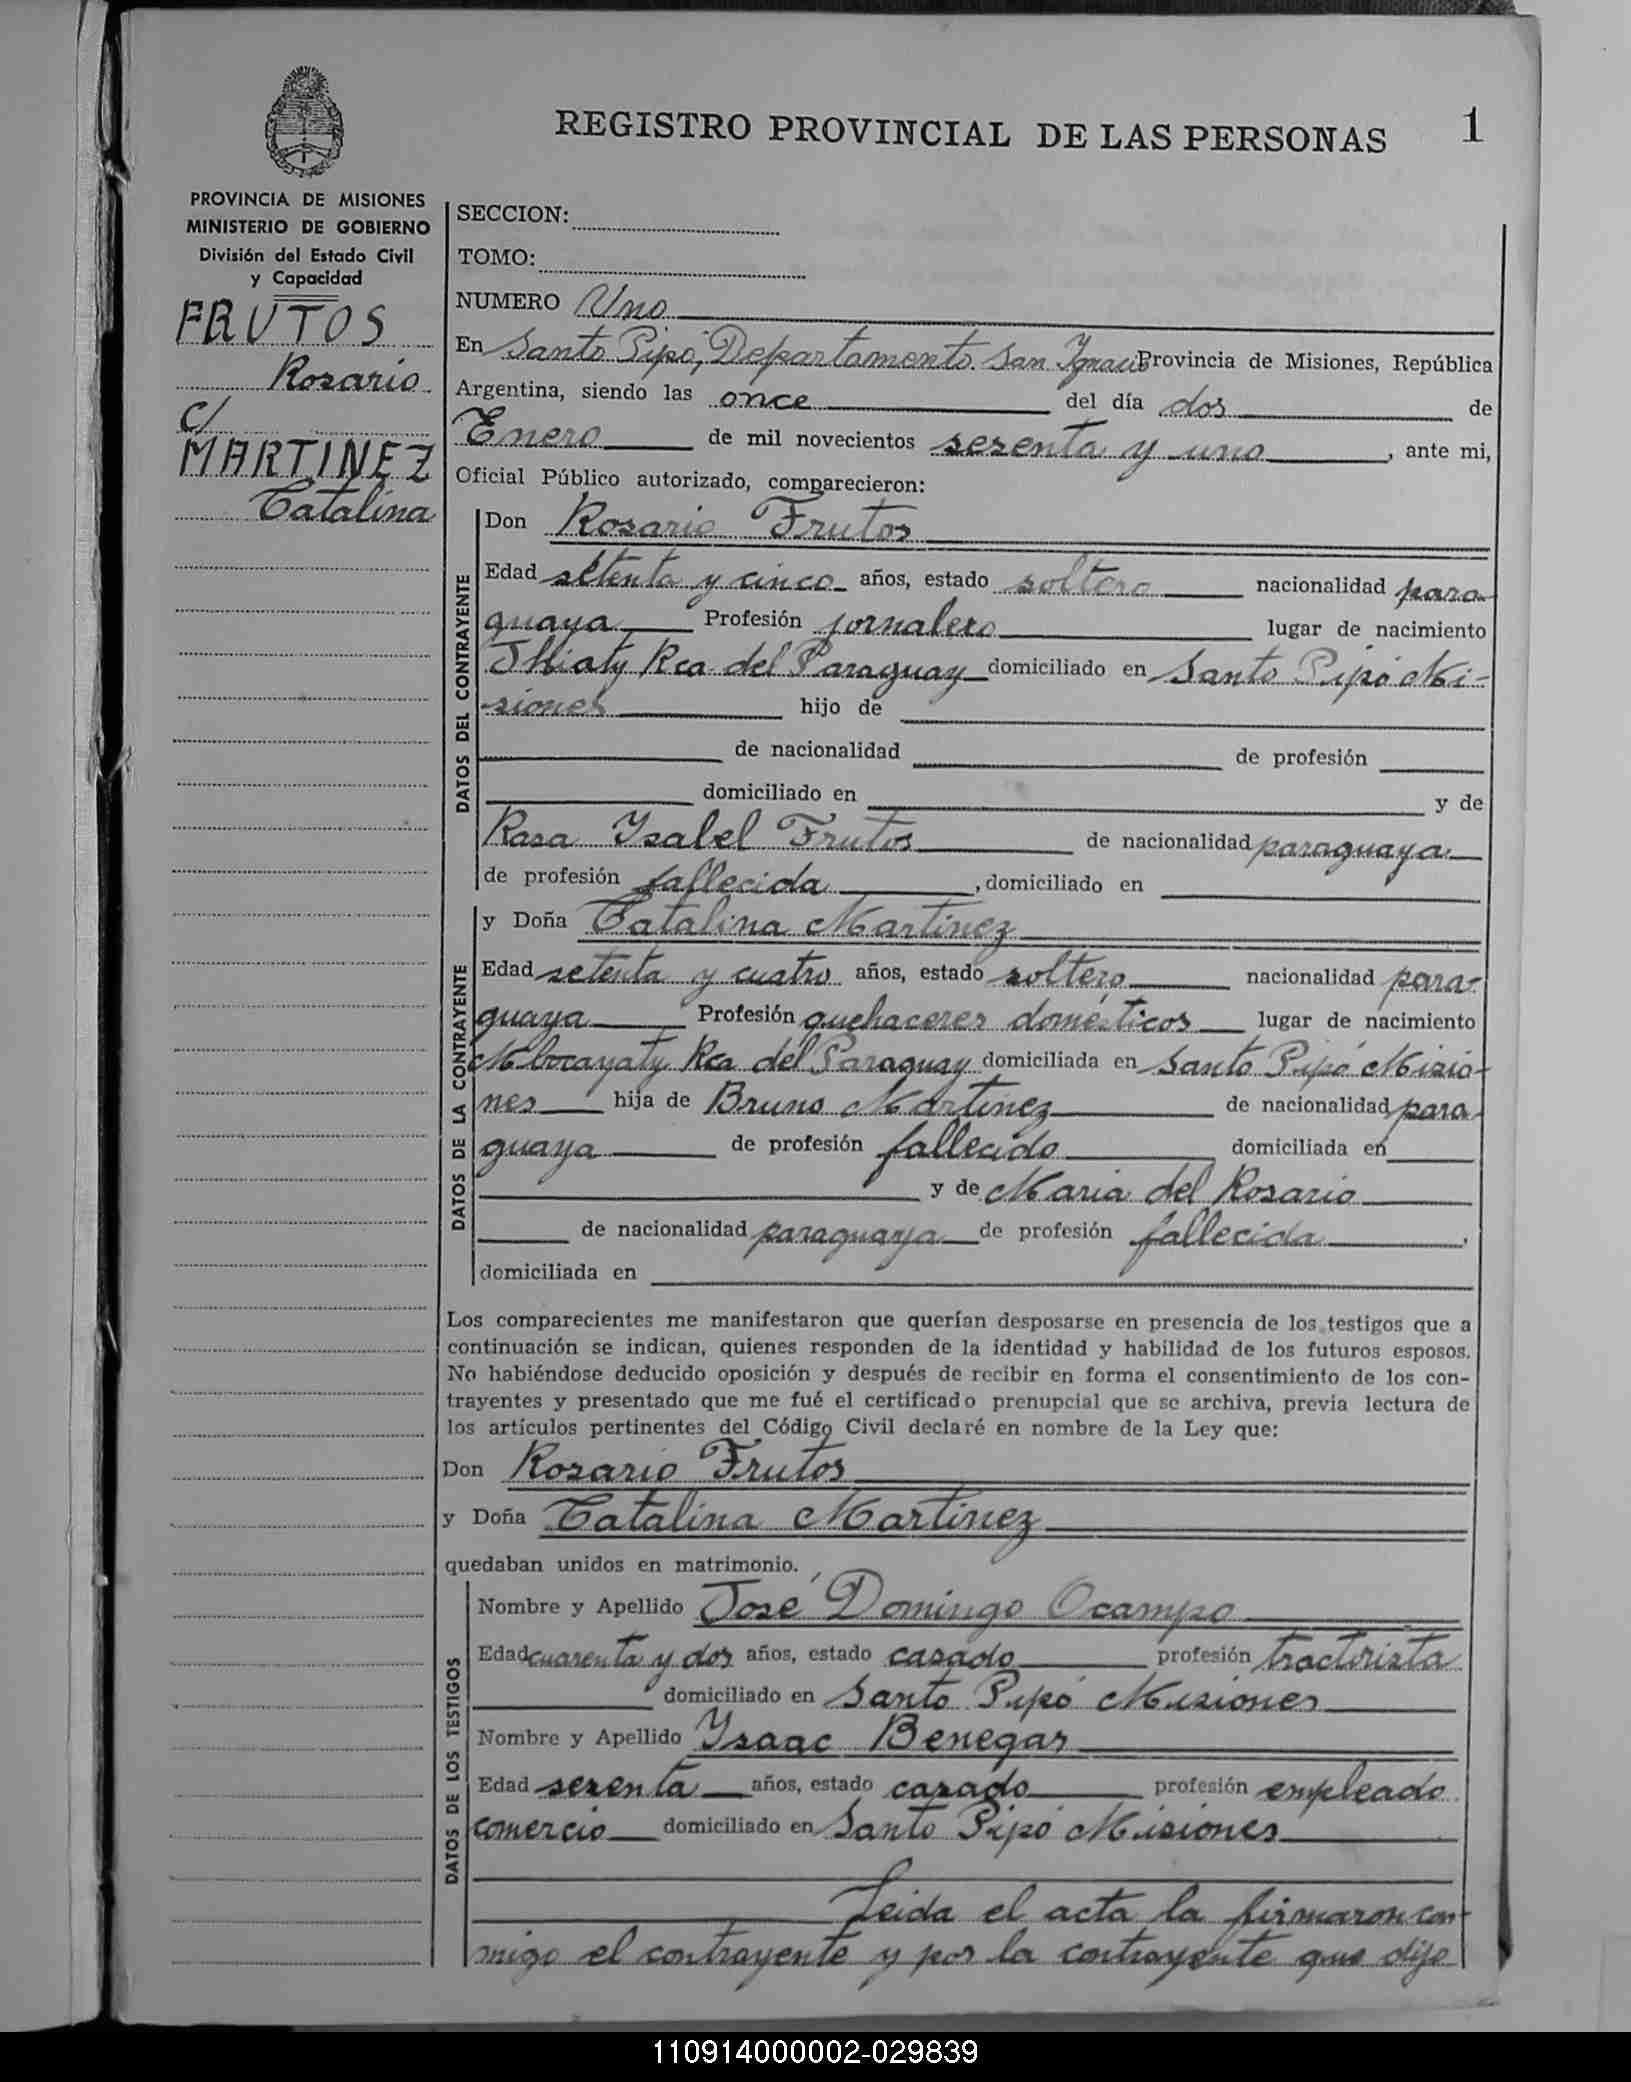 REGISTRO PROVINCIAL DE LAS PERSONAS 1
PROVINCIA DE MISIONES
MINISTERIO DE GOBIERNO
División del Estado Civil
y Capacidad
FRUTOS
Rosario
c/
MARTINEZ
Catalina
SECCION:
TOMO:
NUMERO Uno
En Santo Pipó, Departamento San Ignacio Provincia de Misiones, República
Argentina, siendo las once del día dos de
Enero de mil novecientos sesenta y uno, ante mi,
Oficial Público autorizado, comparecieron:
DATOS DEL CONTRAYENTE
Don Rosario Frutos
Edad setenta y cinco años, estado soltero nacionalidad para-
guaya Profesión jornalero lugar de nacimiento
Rca. del Paraguay domiciliado en Santo Pipó Mi-
siones hijo de
de nacionalidad de profesión
domiciliado en y de
Rosa Ysabel Frutos de nacionalidad paraguaya
de profesión fallecida, domiciliado en
DATOS DE LA CONTRAYENTE
y Doña Catalina Martinez
Edad setenta y cuatro años, estado soltero nacionalidad para-
guaya Profesión quehaceres domésticos lugar de nacimiento
Mbocayaty Rca del Paraguay domiciliada en Santo Pipó Misio-
nes hija de Bruno Martinez de nacionalidad para-
guaya de profesión fallecido domiciliada en
y de Maria del Rosario
de nacionalidad paraguaya de profesión fallecida.
domiciliada en
Los comparecientes me manifestaron que querían desposarse en presencia de los testigos que a
continuación se indican, quienes responden de la identidad y habilidad de los futuros esposos.
No habiéndose deducido oposición y después de recibir en forma el consentimiento de los con-
trayentes y presentado que me fué el certificado prenupcial que se archiva, previa lectura de
los artículos pertinentes del Código Civil declaré en nombre de la Ley que:
Don Rosario Frutos
y Doña Catalina Martinez
quedaban unidos en matrimonio.
DATOS DE LOS TESTIGOS
Nombre y Apellido José Domingo Ocampo
Edad cuarenta y dos años, estado casado profesión tractorista
domiciliado en Santo Pipó Misiones
Nombre y Apellido Ysaac Benegas
Edad sesenta años, estado casado profesión empleado
comercio domiciliado en Santo Pipó Misiones
Leida el acta la firmaron con-
migo el contrayente y por la contrayente que dijo
110914000002-029839